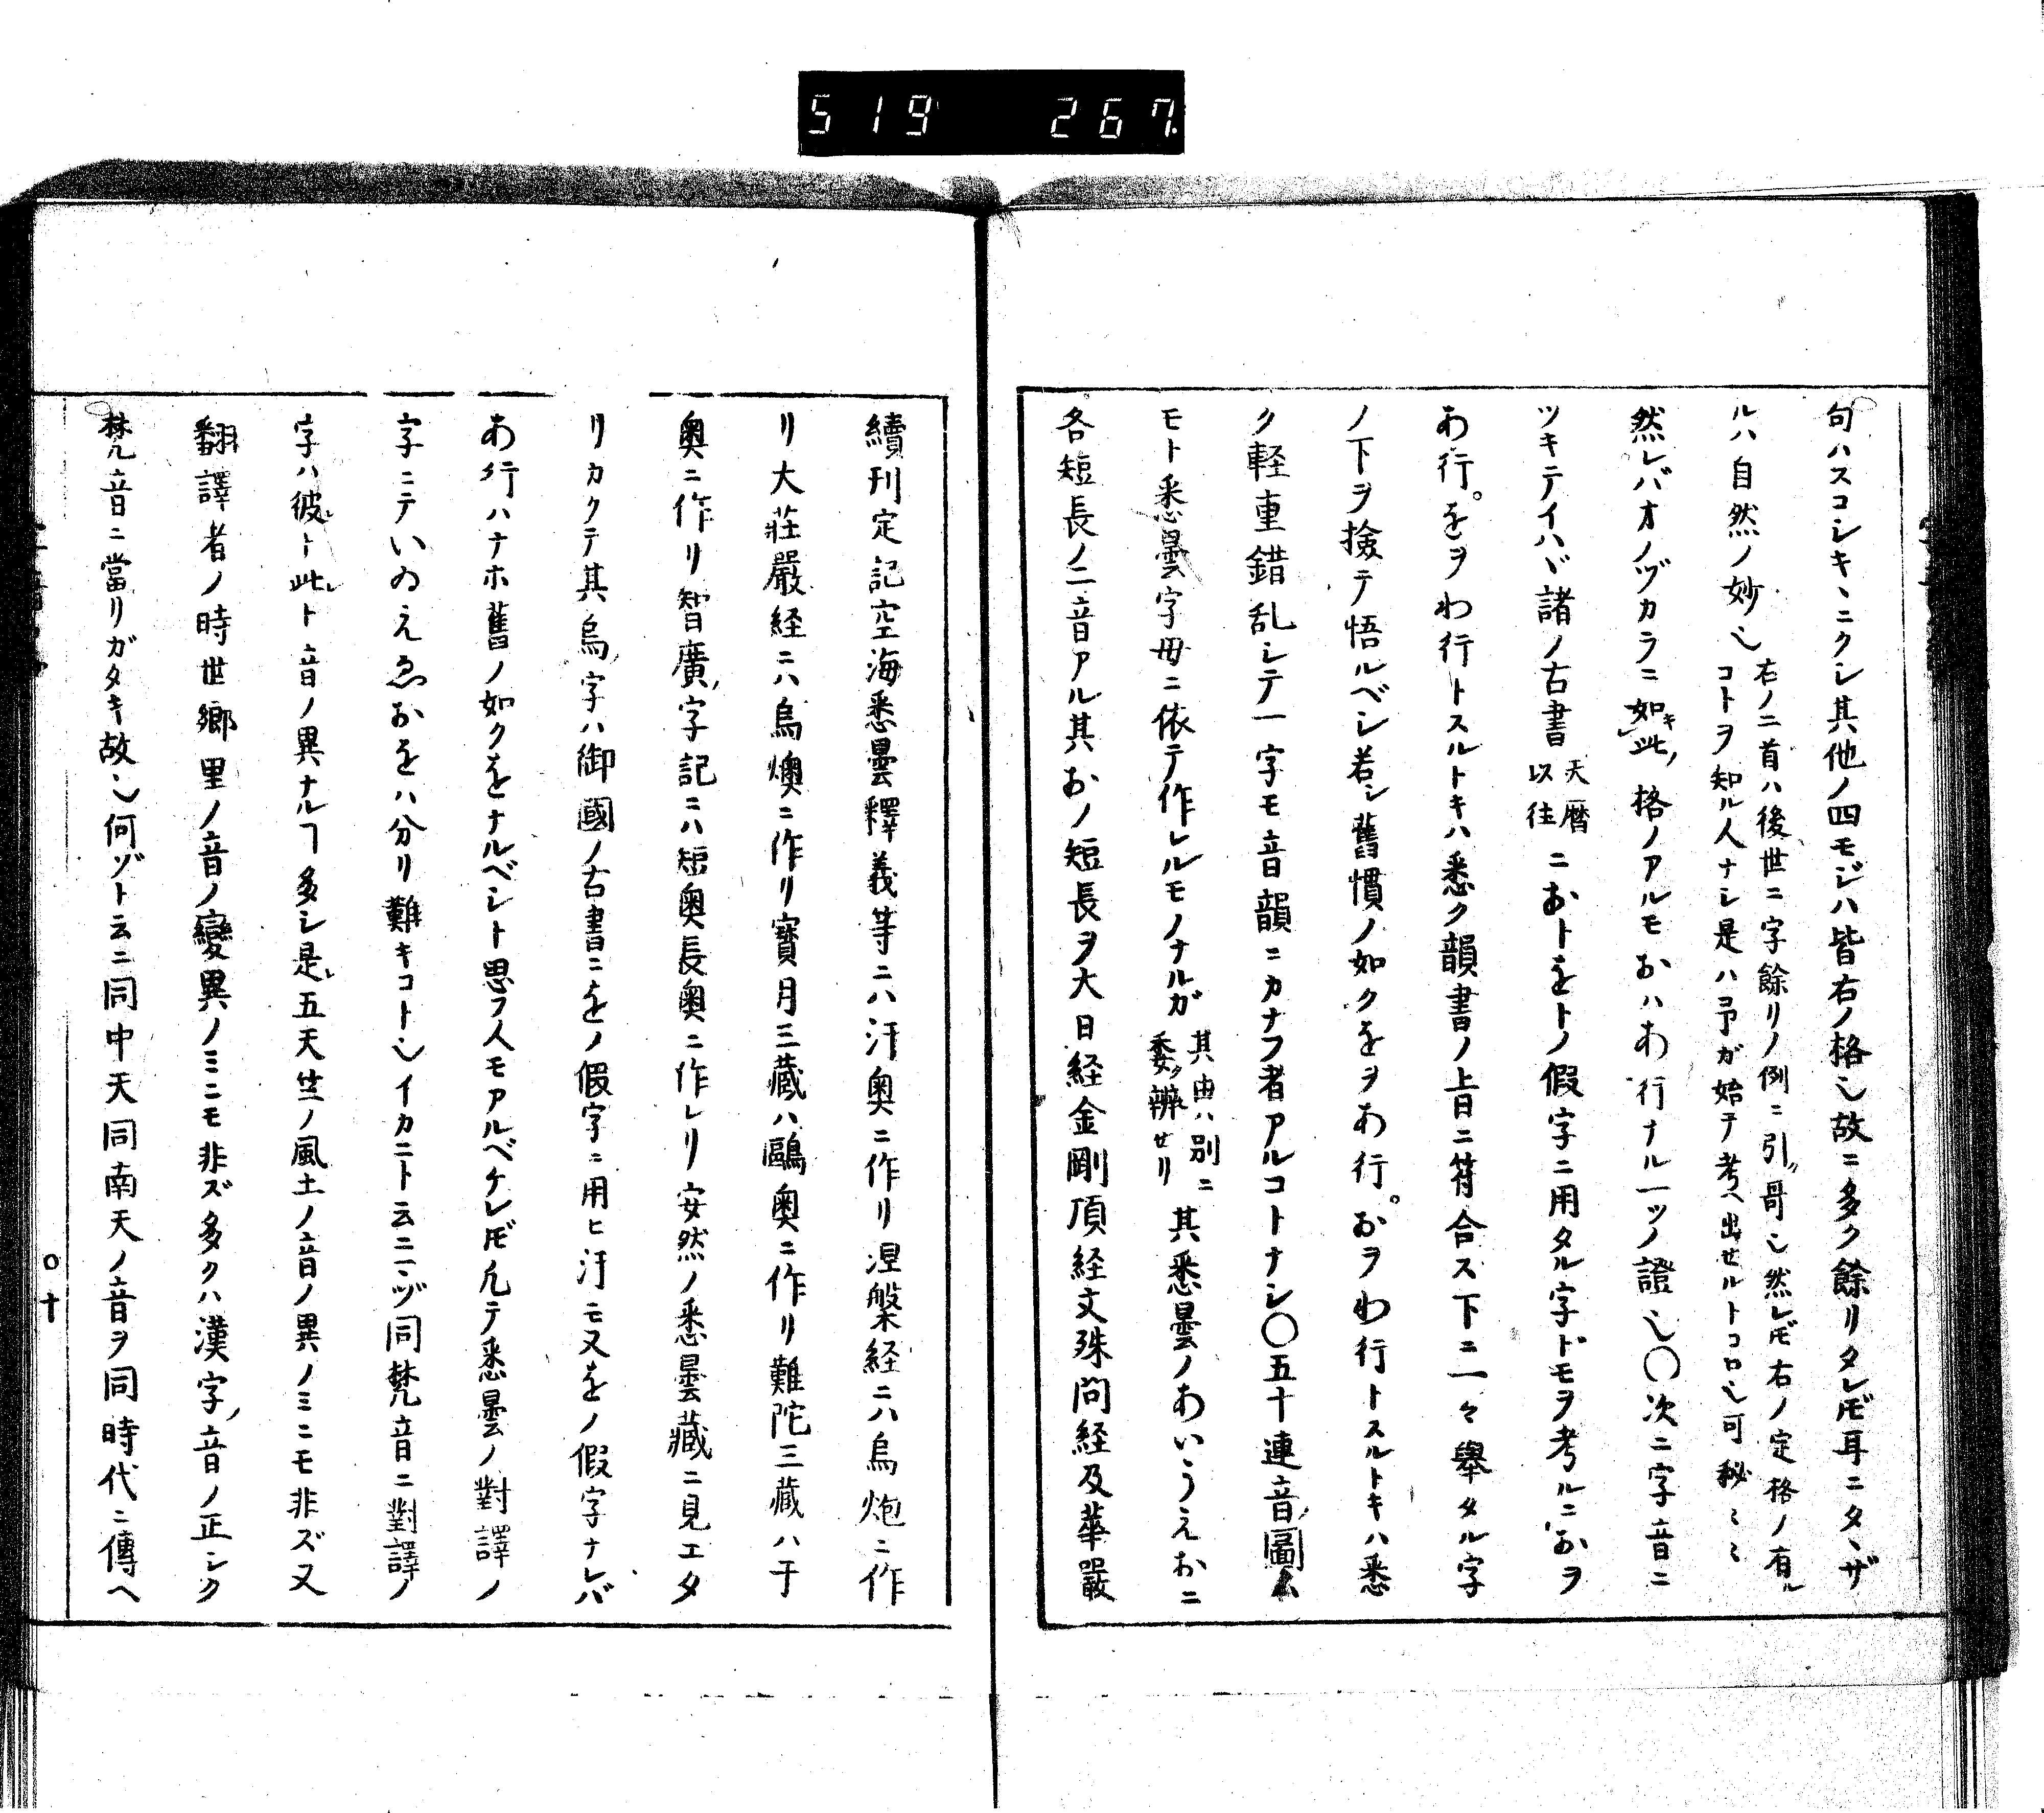 519 267
句ハスコシキヽニクシ其他ノ四モジハ皆右ノ格也故ニ多ク餘リタレ𪜈耳ニタヽザ
ルハ自然ノ妙也 右ノ二首ハ後世ニ字餘リノ例ニ引ク哥也然レ𪜈右ノ定格ノ有ル
コトヲ知ル人ナシ是ハ予ガ始テ考ヘ出セルトコロ也可秘〻〻
然レバオノヅカラニ如キ此ノ格ノアルモおハあ行ナル一ツノ證也〇次ニ字音ニ
ツキテイハヾ諸ノ古書 天暦以往 ニおトをトノ假字ニ用タル字ドモヲ考ルニおヲ
あ行。をヲわ行トスルトキハ悉ク韻書ノ旨ニ符合ス下ニ一々擧タル字
ノ下ヲ撿テ悟ルベシ若シ舊慣ノ如クをヲあ行。おヲわ行トスルトキハ悉
ク軽重錯乱シテ一字モ音韻ニカナフ者アルコトナシ〇五十連音ノ圖ハ
モト悉曇字母ニ依テ作レルモノナルガ 其由ハ別ニ委ク辨セリ 其悉曇ノあいうえおニ
各短長ノ二音アル其おノ短長ヲ大日経金剛頂経文殊問経及華嚴
續刊定記空海悉曇釋義等ニハ汙奥ニ作リ涅槃経ニハ烏炮ニ作
リ大荘嚴経ニハ烏燠ニ作リ寶月三藏ハ鷗奥ニ作リ難陀三藏ハ于
奥ニ作リ智廣ノ字記ニハ短奥長奥ニ作レリ安然ノ悉曇藏ニ見エタ
リカクテ其烏ノ字ハ御國ノ古書ニをノ假字ニ用ヒ汙モ又をノ假字ナレバ
あ行ハナホ舊ノ如クをナルベシト思フ人モアルベケレ𪜈凡テ悉曇ノ對譯ノ
字ニテいゐえゑおをハ分リ難キコト也イカニト云ニマヅ同梵音ニ對譯ノ
字ハ彼レト此レト音ノ異ナルヿ多シ是レ五天竺ノ風土ノ音ノ異ノミニモ非ズ又
翻譯者ノ時世郷里ノ音ノ變異ノミニモ非ズ多クハ漢字ノ音ノ正シク
梵音ニ當リガタキ故也何ゾト云ニ同中天同南天ノ音ヲ同時代ニ傳ヘ
〇十